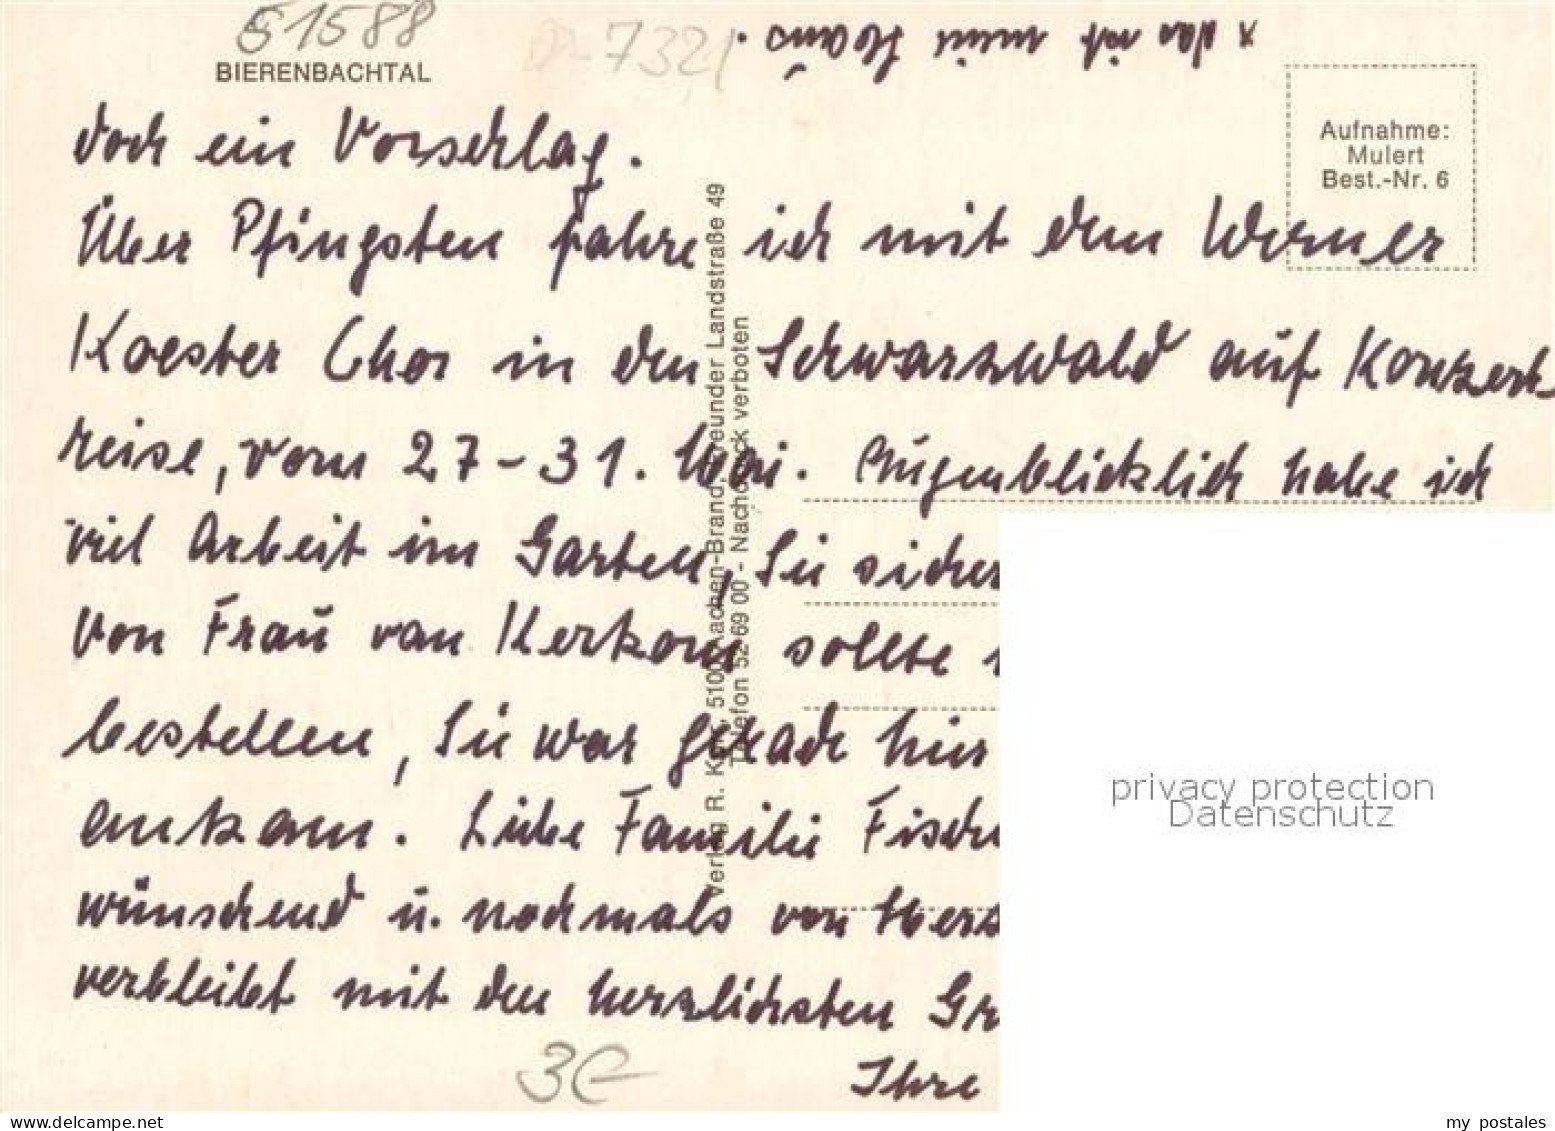 51588
D-7321
x das ist mein Haus.
BIERENBACHTAL
Aufnahme:
Mulert
Best.-Nr. 6
doch ein Vorschlag.
Über Pfingsten fahre ich mit dem Werner
Koester Chor in den Schwarzwald auf Konzert-
reise, vom 27-31. Mai. Augenblicklich habe ich
viel Arbeit im Garten, Sie sicher
Von Frau van Kerkom sollte
bestellen, Sie war gerade hier
ankam. Liebe Familie
wünschend u. nochmals von
verbleibt mit den herzlichsten
Ihre
Verlag R. 5100 Aachen-Brand, Freunder Landstraße 49
Telefon 52 69 00 - Nachdruck verboten
3€
privacy protection
Datenschutz
www.delcampe.net
my_postales